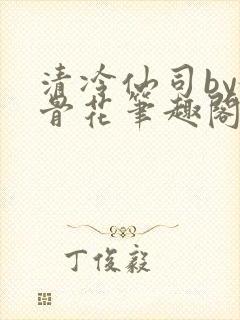 清冷仙司by
骨花笔趣阁
丁俊毅